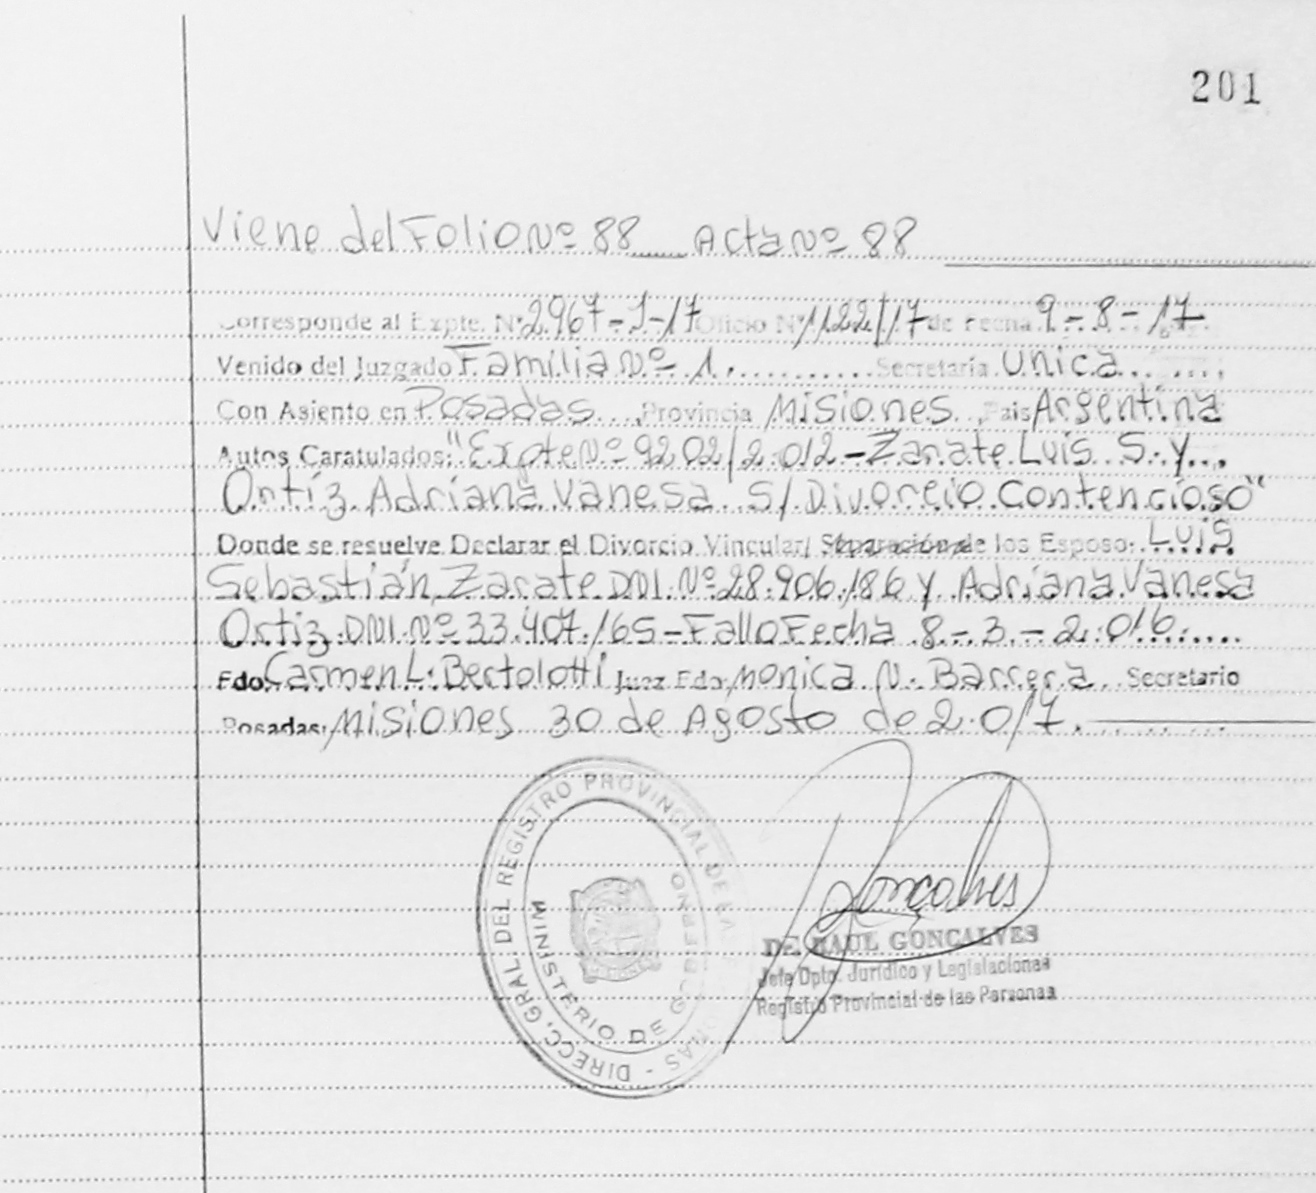 201
Viene del Folio Nº 88 Acta Nº 88
Corresponde al Expte. Nº 2967-J-17 Oficio Nº 1122/17 de Fecha 9-8-17
Venido del Juzgado Familia Nº 1. Secretaría Unica
Con Asiento en Posadas, Provincia Misiones País Argentina
Autos Caratulados: "Expte Nº 9202/2.012-Zarate Luis S. y
Ortíz Adriana Vanesa S/ Divorcio Contencioso"
Donde se resuelve Declarar el Divorcio Vincular/ Separación de los Esposo: Luis
Sebastián Zarate DNI. Nº 28.906.186 y Adriana Vanesa
Ortiz DNI. Nº 33.407.165-Fallo Fecha 8-3-2.016.
Fdo. Carmen L. Bertolotti Juez Fdo. Monica N. Barrera Secretario
Posadas, Misiones 30 de Agosto de 2.017.
DIRECC. GRAL. DEL REGISTRO PROVINCIAL DE LAS PERSONAS -
MINISTERIO DE GOBIERNO
Goncalves
DR. RAUL GONCALVES
Jefe Dpto. Jurídico y Legislaciones
Registro Provincial de las Personas